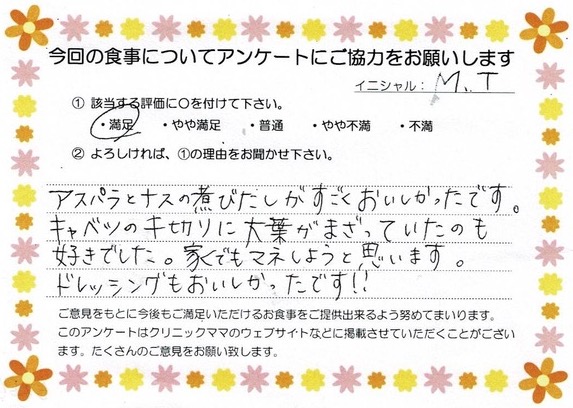 今回の食事についてアンケートにご協力をお願いします
イニシャル： M.T
① 該当する評価に○を付けて下さい。
・満足 ・やや満足 ・普通 ・やや不満 ・不満
② よろしければ、①の理由をお聞かせ下さい。
アスパラとナスの煮びたしがすごくおいしかったです。
キャベツの千切りに大葉がまざっていたのも
好きでした。家でもマネしようと思います。
ドレッシングもおいしかったです!!
ご意見をもとに今後もご満足いただけるお食事をご提供出来るよう努めてまいります。
このアンケートはクリニックママのウェブサイトなどに掲載させていただくことがござい
ます。たくさんのご意見をお願い致します。